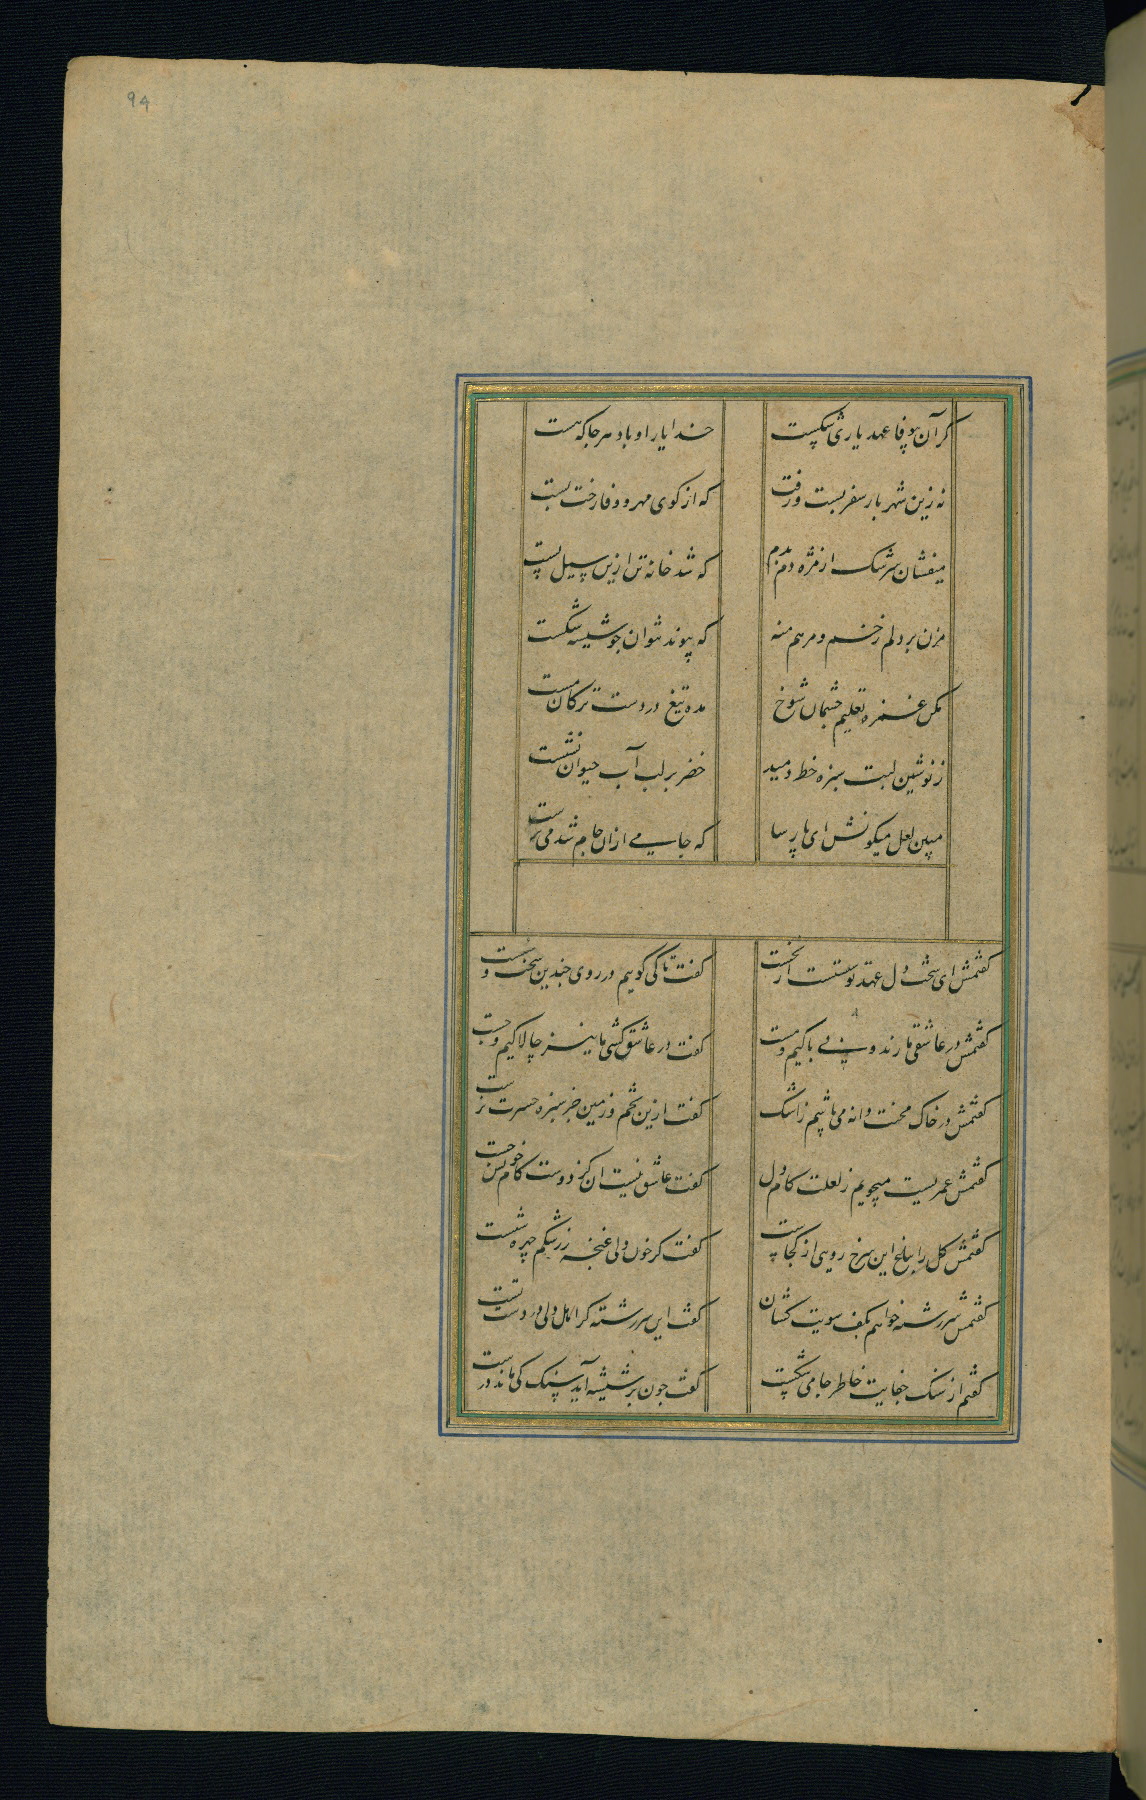 94
کر آن بیوفا عهد یاری شکست خدا یار او باد هر جا که هست
نه زین شهر بار سفر بست و رفت که از کوی مهر و وفا رخت بست
میفشان سرشک از مژه دم بدم که شد خانه تن ازین سیل پست
مزن بر دلم زخم و مرهم منه که پیوند نتوان چو شیشه شکست
مکن غمزه تعلیم چشمان شوخ مده تیغ در دست ترکان مست
ز نوشین لبت سبزه خط دمید خضر بر لب آب حیوان نشست
مبین لعل میکونش ای پارسا که جامی ازان جام شد می پرست
کفتمش ای سخت دل عهد تو سستست از نخست کفت تا کی کوییم در روی چندین سخت و سست
کفتمش در عاشقی ما رند و بی باکیم و مست کفت در عاشق کشی ما نیز چالاکیم و چست
کفتمش در خاک محنت دانه می پاشیم ز اشک کفت ازین تخم و زمین جز سبزه حسرت نرست
کفتمش عمریست میجویم ز لعلت کام دل کفت عاشق نیست ان کز دوست کام خویش جست
کفتمش کل را بباغ این سرخ رویی از کجاست کفت کز خون دل غنچه ز رشکم چهره شست
کفتمش سررشته خواهم بکف سویت کشان کفت این سررشته کر اهل دلی در دست تست
کفتم از سنک جفایت خاطر جامی شکست کفت چون بر شیشه آید سنک کی ماند درست